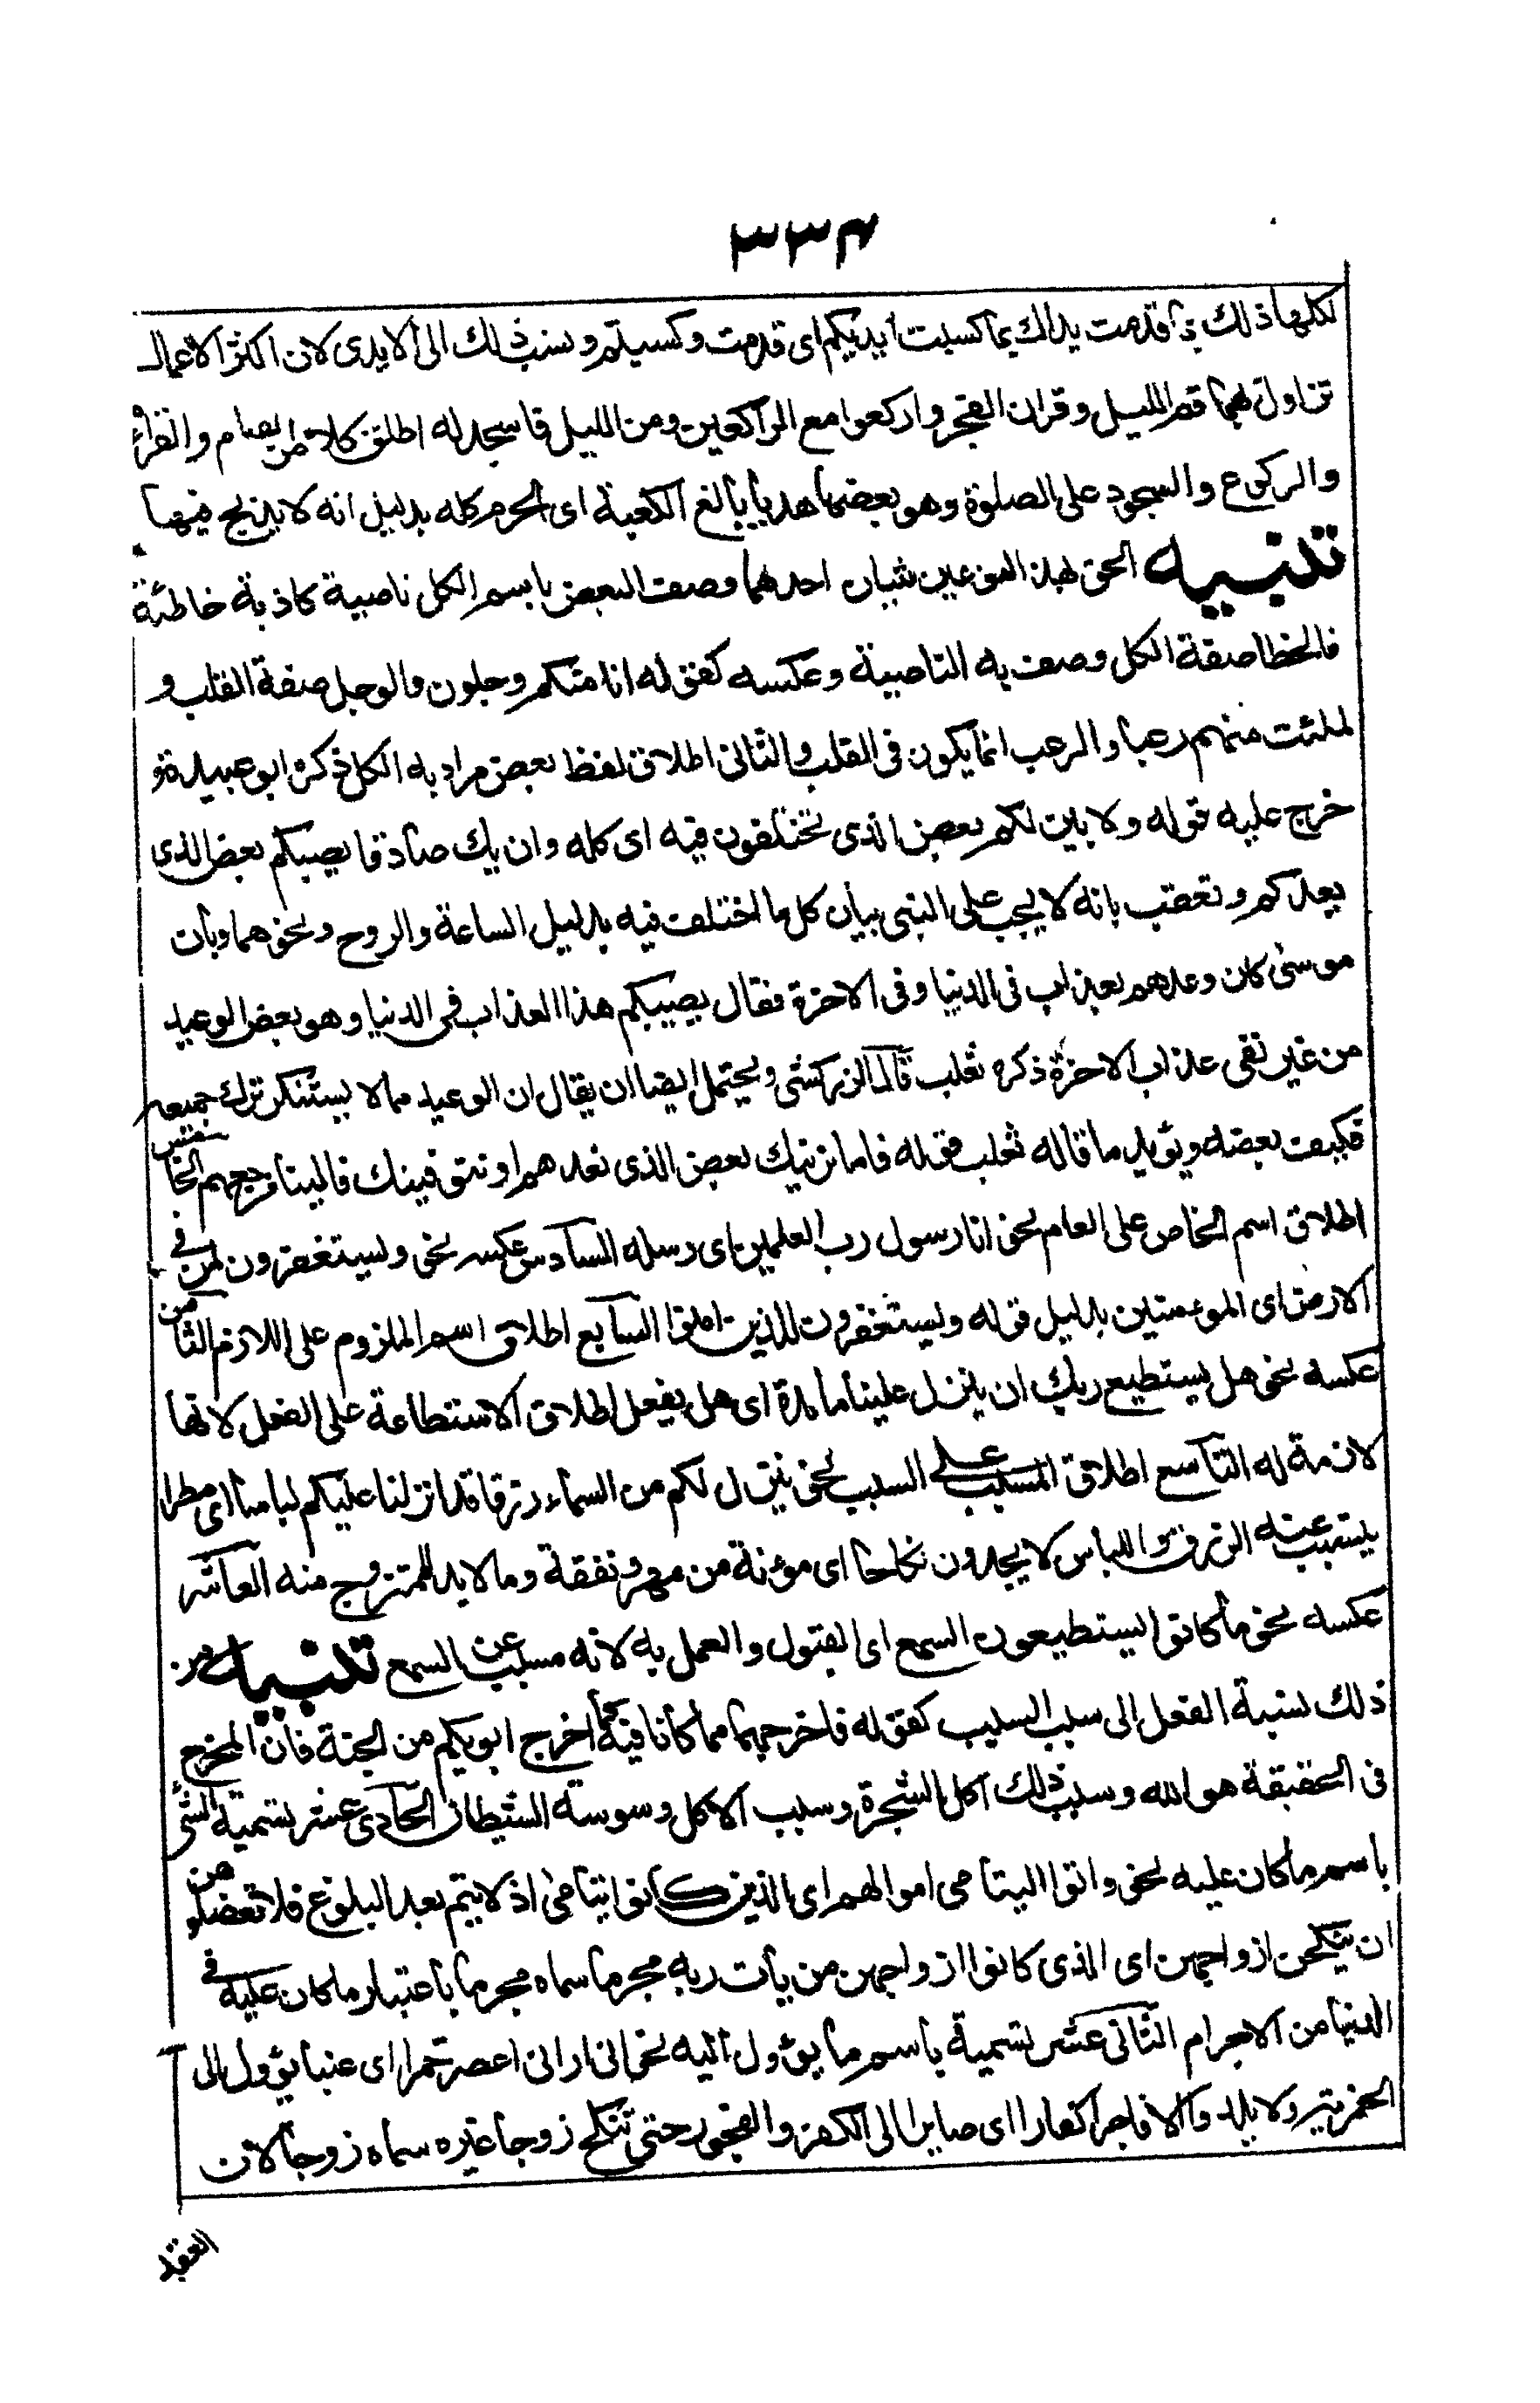 ٣٣٤
لكلها ذلك بما قدمت يداك بما كسبت أيديكم اى قدمت وكسبتم ونسب ذلك الى الايدى لان اكثر الاعمال
تزاول بهما قم الليل وقران الفجر واركعوا مع الراكعين ومن الليل فاسجد له اطلق كلا من القيام والقراءة
والركوع والسجود على الصلوة وهو بعضها هديا بالغ الكعبة اى الحرم كله بدليل انه لا يذبح فيها
تنبيه الحق بهذا النوعين شيان احدهما وصف البعض باسم الكل ناصية كاذبة خاطئة
فالخطا صفة الكل وصف به الناصية وعكسه كقوله انا منكم وجلون والوجل صفة القلب و
لملئت منهم رعبا والرعب انما يكون فى القلب والثانى اطلاق لفظ بعض مراد به الكل ذكره ابو عبيدة و
خرج عليه قوله ولابين لكم بعض الذى تختلفون فيه اى كله وان يك صادقا يصبكم بعض الذى
يعدكم وتعقب بانه لا يجب على النبى بيان كل ما اختلف فيه بدليل الساعة والروح ونحوهما وبان
موسى كان وعدهم بعذاب فى الدنيا وفى الاخرة فقال يصيبكم هذا العذاب فى الدنيا وهو بعض الوعيد
من غير نفى عذاب الاخرة ذكره ثعلب قال الزركشى ويحتمل ايضا ان يقال ان الوعيد مما لا يستنكر ترك جميعه
فكيف بعضه ويؤيد ما قاله ثعلب قوله فاما نرينك بعض الذى نعدهم او نتوفينك فالينا مرجعهم الخامس
اطلاق اسم الخاص على العام نحو انا رسول رب العلمين اى رسله السادس عكسه نحو ويستغفرون لمن فى
الارض اى المؤمنين بدليل قوله ويستغفرون للذين امنوا السابع اطلاق اسم الملزوم على اللازم الثامن
عكسه نحو هل يستطيع ربك ان ينزل علينا مائدة اى هل يفعل اطلاق الاستطاعة على الفعل لانها
لازمة له التاسع اطلاق المسبب على السبب نحو ينزل لكم من السماء رزقا قد انزلنا عليكم لباسا اى مطرا
يتسبب عنه الرزق واللباس لا يجدون نكاحا اى مؤنة من مهر ونفقة وما لابد للمتزوج منه العاشر
عكسه نحو ما كانوا يستطيعون السمع اى القبول والعمل به لانه مسبب عن السمع تنبيه من
ذلك نسبة الفعل الى سبب السبب كقوله فاخرجهما مما كانا فيه كما اخرج ابويكم من الجنة فان المخرج
فى الحقيقة هو الله وسبب ذلك اكل الشجرة وسبب الاكل وسوسة الشيطان الحادى عشر تسمية الشئ
باسم ما كان عليه نحو واتوا اليتامى اموالهم اى الذين كانوا يتامى اذ لا يتم بعد البلوغ فلا تعضلوهن
ان ينكحن ازواجهن اى الذى كانوا ازواجهن من يأت ربه مجرما سماه مجرما باعتبار ما كان عليه فى
الدنيا من الاجرام الثانى عشر تسمية باسم ما يؤول اليه نحو انى ارانى اعصر خمرا اى عنبا يؤول الى
الخمرية ولا يلدوا الا فاجرا كفارا اى صايرا الى الكفر والفجور حتى تنكح زوجا غيره سماه زوجا لان
العقد